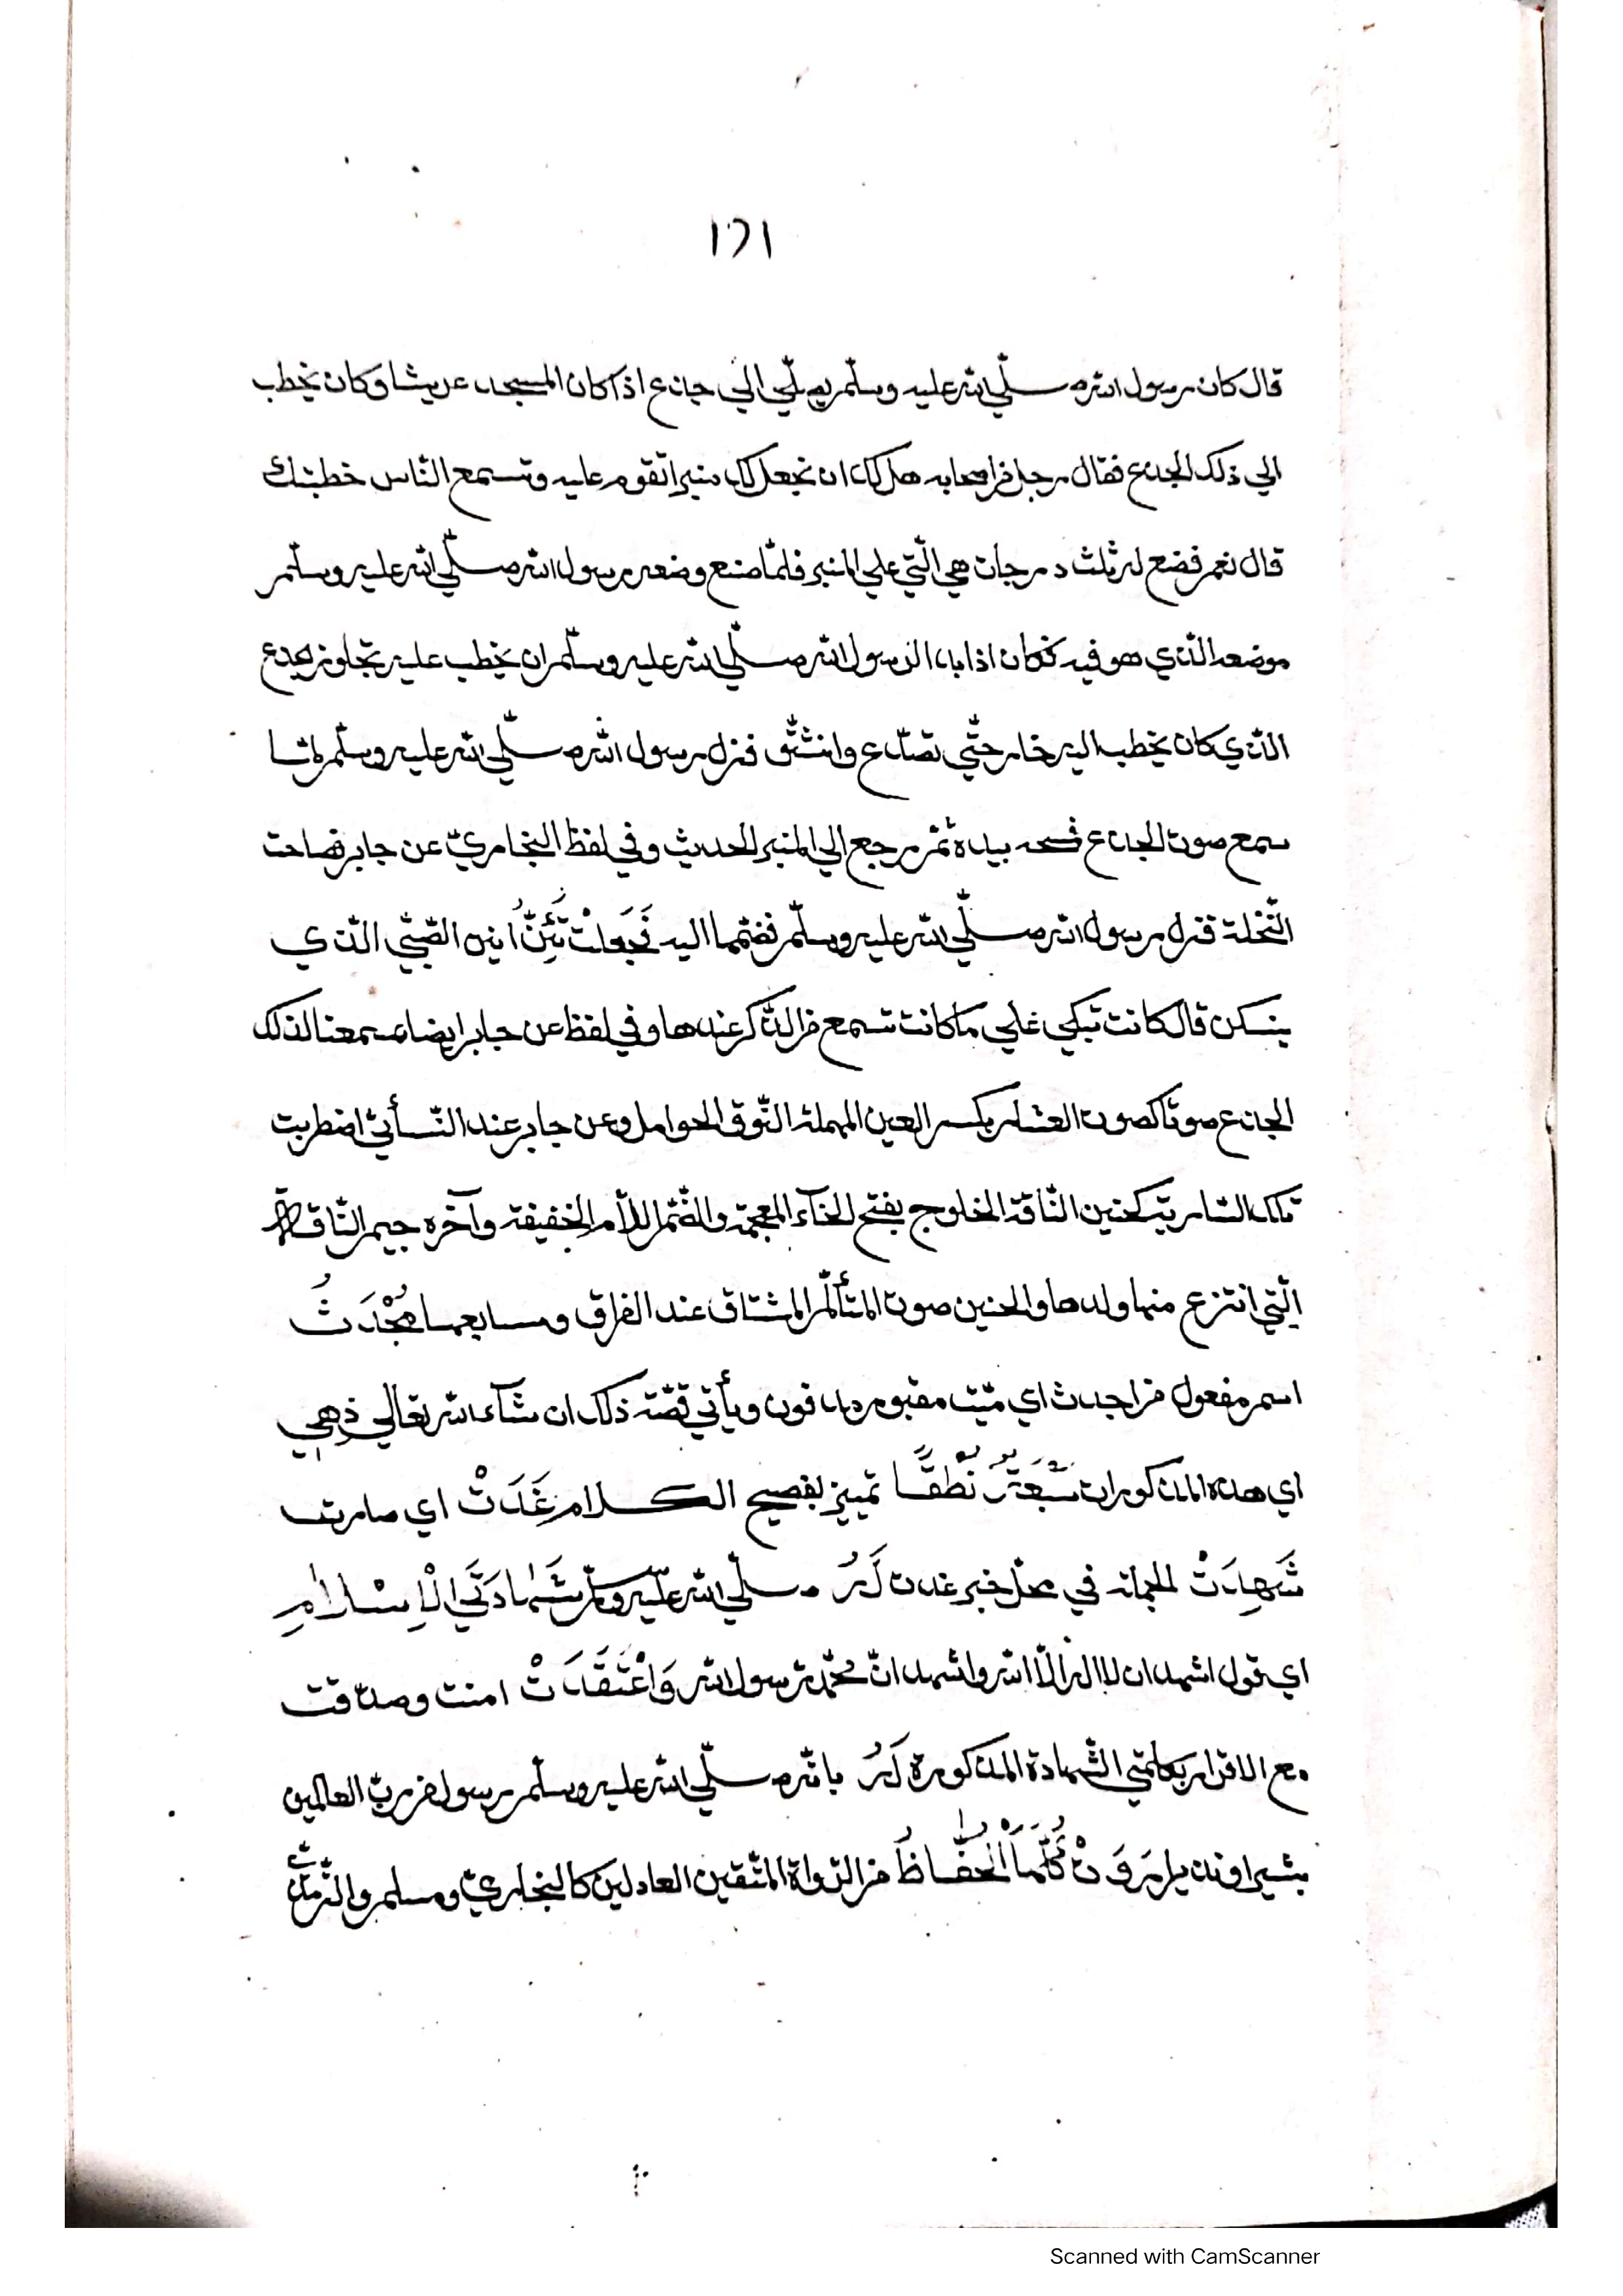 ١٢١
قال كان رسول الله صلّي الله عليه وسلّم يصلّي الي جذع اذا كان المسجد عريشا وكان يخطب
الي ذلك الجذع فقال رجل من اصحابه هل لك ان نجعل لك منبرا تقوم عليه وتسمع النّاس خطبتك
قال نعم فضع له ثلث درجات هي الّتي علي المنبر فلمّا صنع وضعه رسول الله صلّي الله عليه وسلّم
موضعه الّذي هو فيه فكان اذا بدا لرسول الله صلّي الله عليه وسلّم ان يخطب عليه تجاوز الجذع
الّذي كان يخطب اليه خار حتّي تصدّع وانشقّ فنزل رسول الله صلّي الله عليه وسلّم لمّا
سمع صوت الجذع فمسحه بيده ثمّ رجع الي المنبر الحديث وفي لفظ البخاريّ عن جابر فصاحت
النّخلة فنزل رسول الله صلّي الله عليه وسلّم فضمّها اليه فَجَعَلَتْ تَئِنُّ انين الصّبيّ الّذي
يسكن قال كانت تبكي علي ما كانت تسمع من الذّكر عندها وفي لفظ عن جابر ايضا سمعنا لذلك
الجذع صوتا كصوت العشار بكسر العين المهملة النّوق الحوامل وعن جابر عند النّسآئيّ اضطربت
تلك السّارية كحنين النّاقة الخلوج بفتح الخآء المعجمة والضّمّ اللّام الخفيفة وآخره جيم النّاقة
الّتي انتزع منها ولدها والحنين صوت المتألّم المشتاق عند الفراق وسابعها مُجْدَثُ
اسم مفعول من اجدث اي ميّت مقبور مدفون ويأتي قصّة ذلك ان شآء الله تعالي فهي
اي هذه المذكورات سَبْعَةٌ نُطْقًا تمييز بفصيح الكلام غَدَتْ اي صارت
شَهِدَتْ الجملة في محلّ خبر غدت لَهُ صلّي الله عليه وسلّم بشَهَادَتَيِ الْاِسْلَامِ
اي قول اشهد ان لا اله الّا الله واشهد انّ محمّد رسول الله وَاعْتَقَدَتْ امنت وصدّقت
مع الاقرار بكلمتي الشّهادة المذكورة لَهُ بانّه صلّي الله عليه وسلّم رسول من ربّ العالمين
بشيرا ونذيرا رَوَتْ كُلَّهَا الْحُفَّاظُ من الرّواة المتّقين العادلين كالبخاريّ ومسلم والتّرمذيّ
Scanned with CamScanner